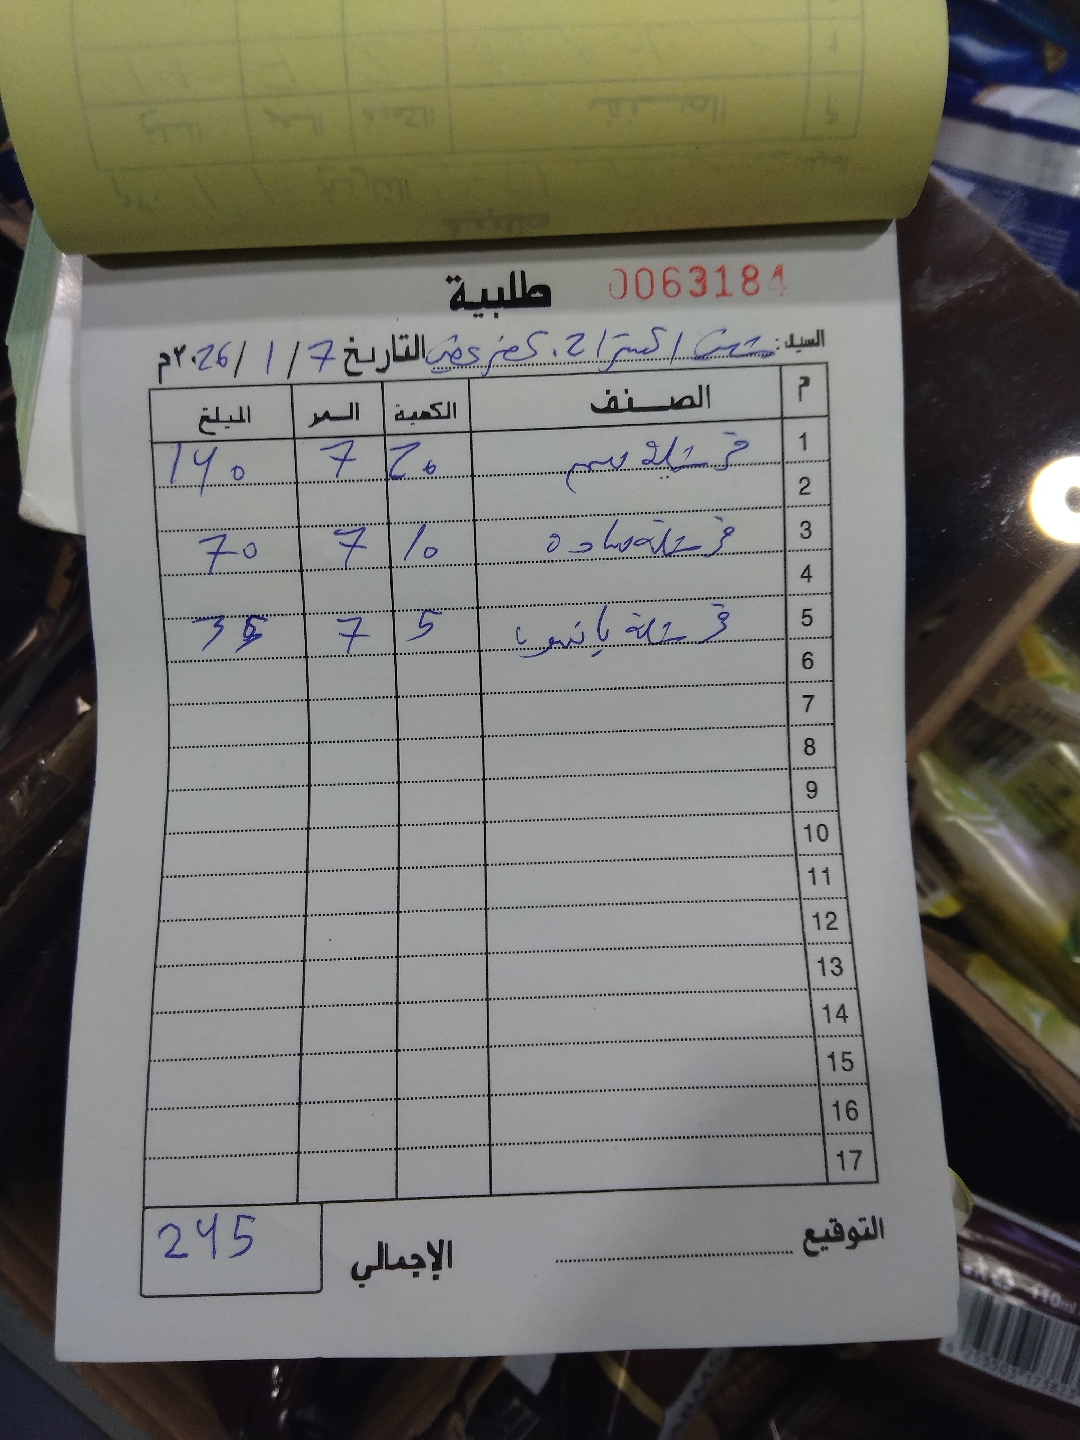 طلبية 0063184
السيد: التاريخ 7 / 1 / 2026م
م الصنف الكمية السعر المبلغ
1 قرشلة سمسم 20 7 140
2
3 قرشلة سادة 10 7 70
4
5 قرشلة يانسون 5 7 35
6
7
8
9
10
11
12
13
14
15
16
17
التوقيع الإجمالي 245